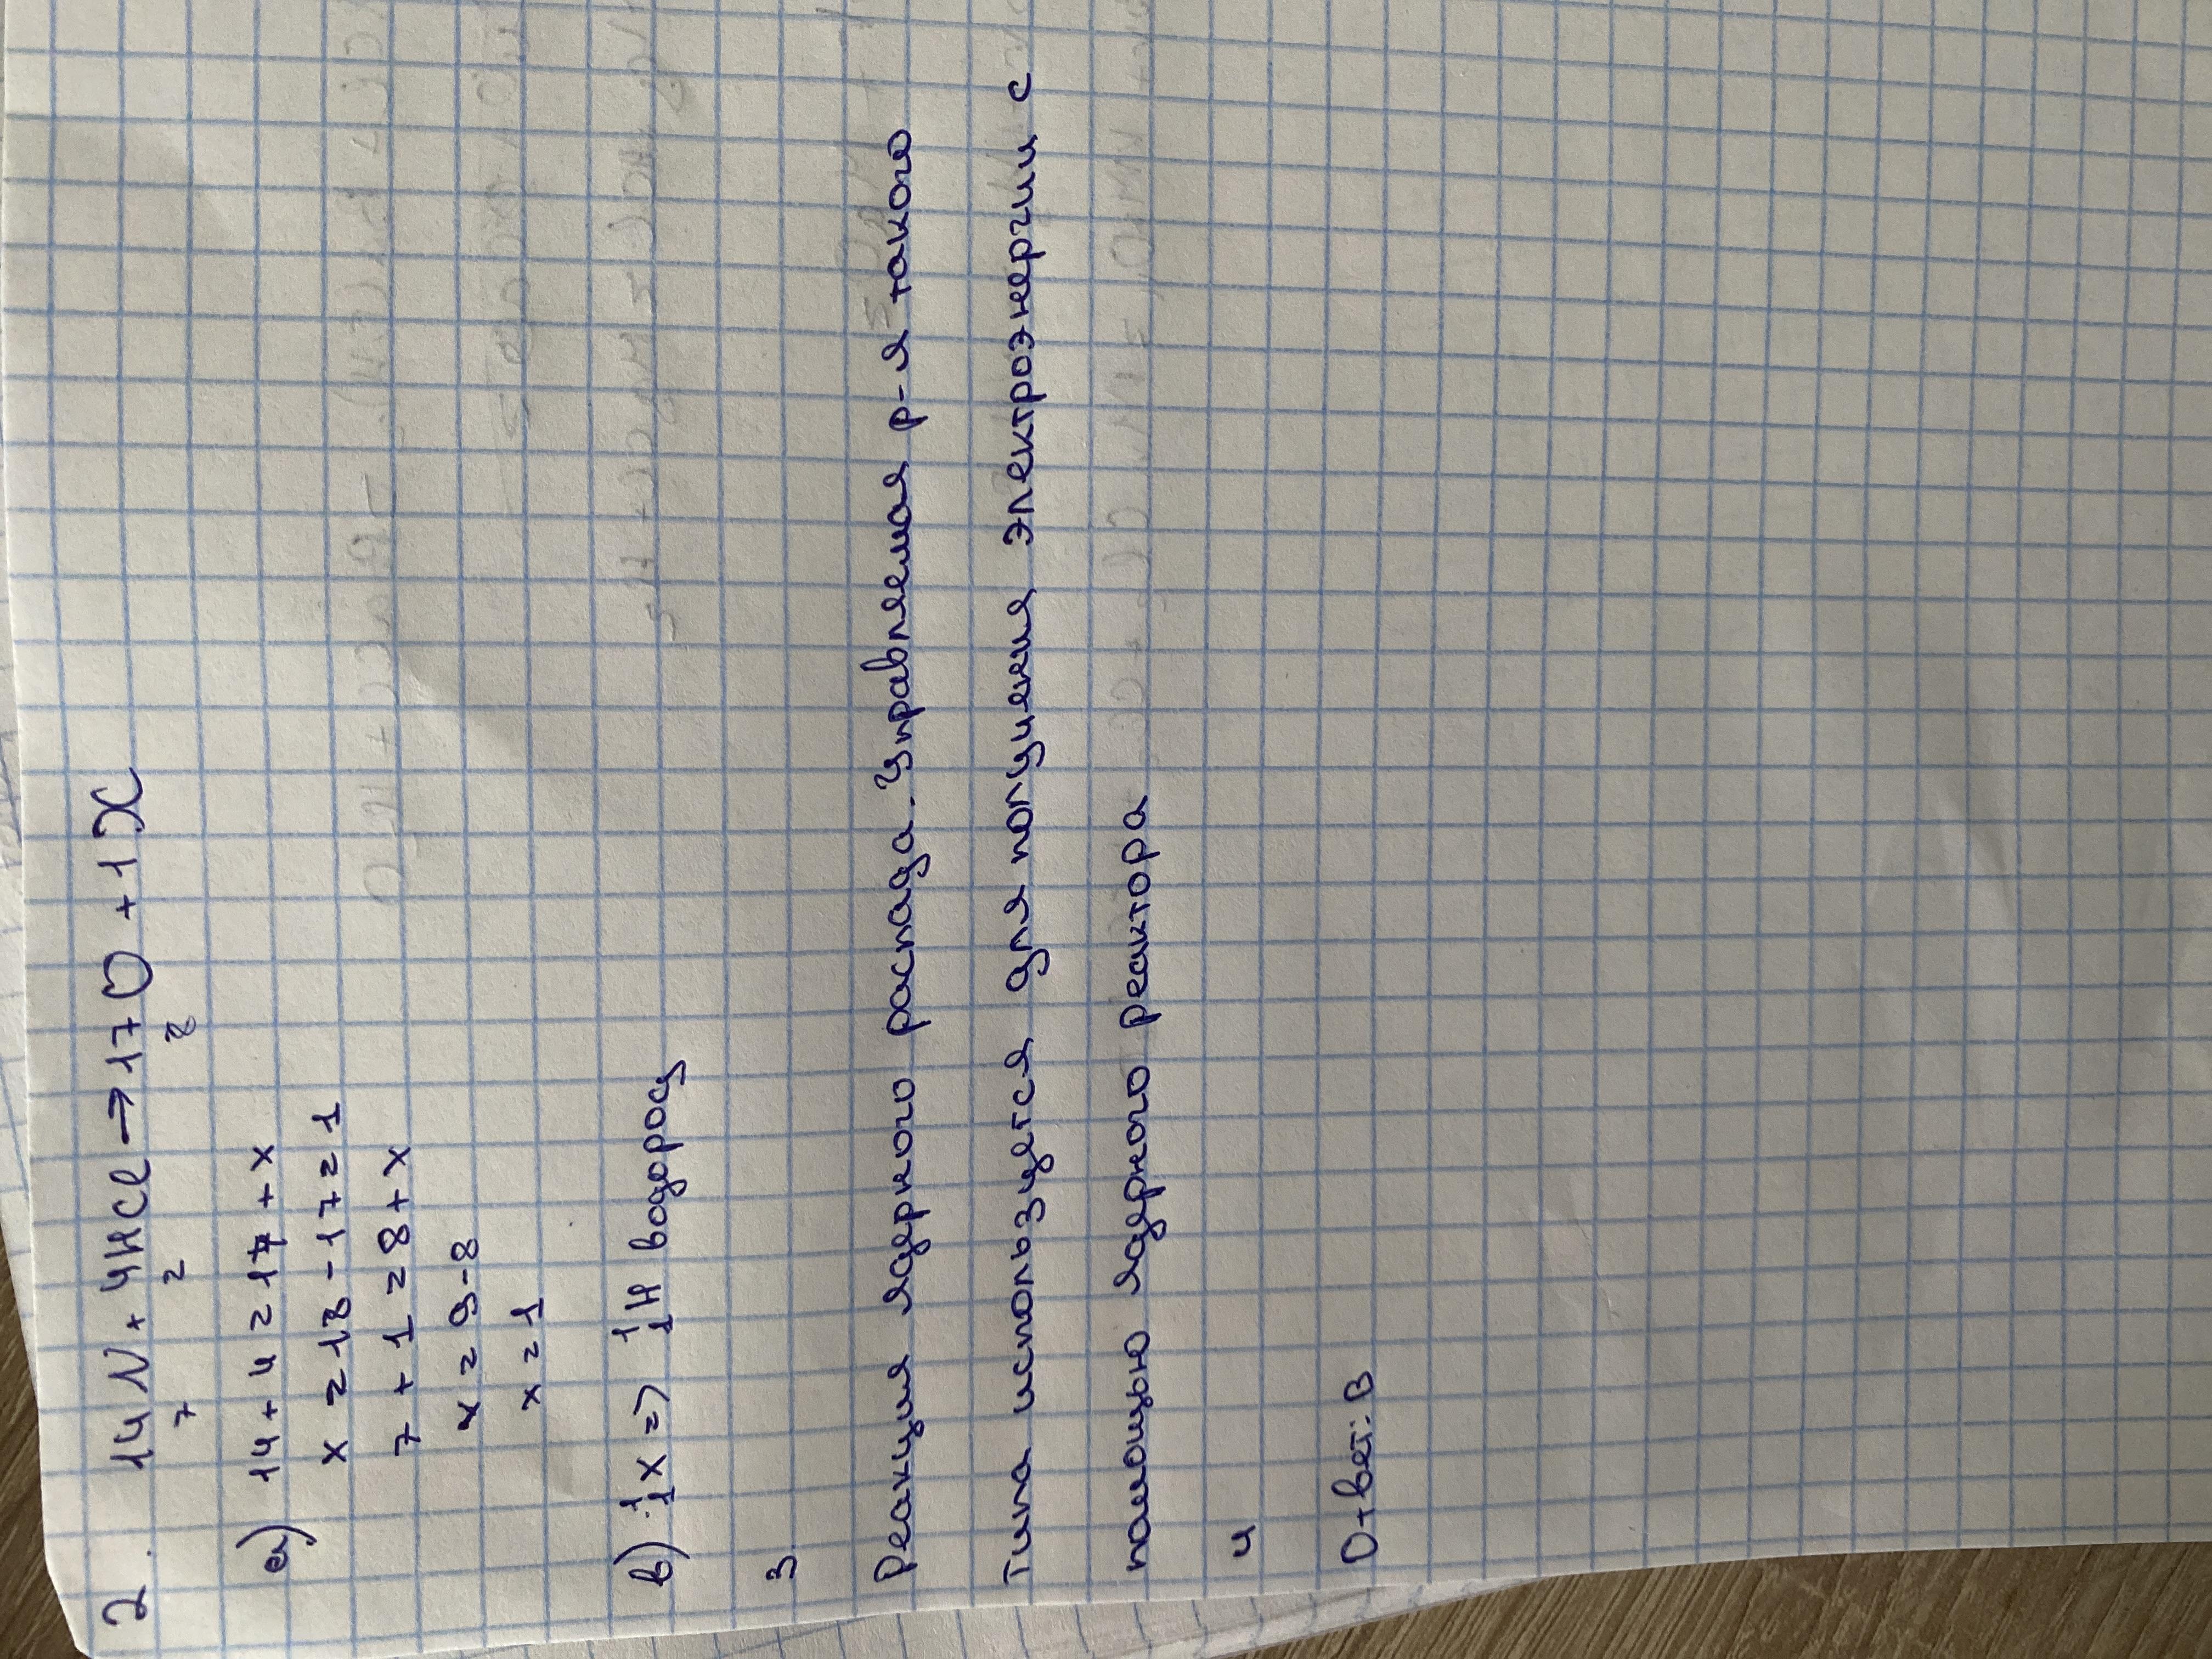 2. 14N + 4HCl → 17O + 1X
7 2 8
а) 14 + 4 = 17 + x
x = 18 - 17 = 1
7 + 1 = 8 + x
x = 9 - 8
x = 1
в) ¹₁X => ¹₁H водород
3
Реакция ядерного распада. Управляемая р-я такого
типа используется для получения электроэнергии с
помощью ядерного реактора
4
Ответ: В